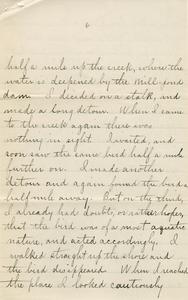 6
half a mile up the creek, where the
water is deepened by the mill-pond
dam. I decided on a stalk, and
made a long detour. When I came
to the creek again there was
nothing in sight. I waited, and
soon saw the same bird half a mile
further on. I made another
detour and again found the bird a
half mile away. But on the
I already had doubts, or rather hopes,
that the bird was of a most aquatic
nature, and acted accordingly. I
walked straight up the shore and
the bird disappeared. When I reached
the place I looked cautiously